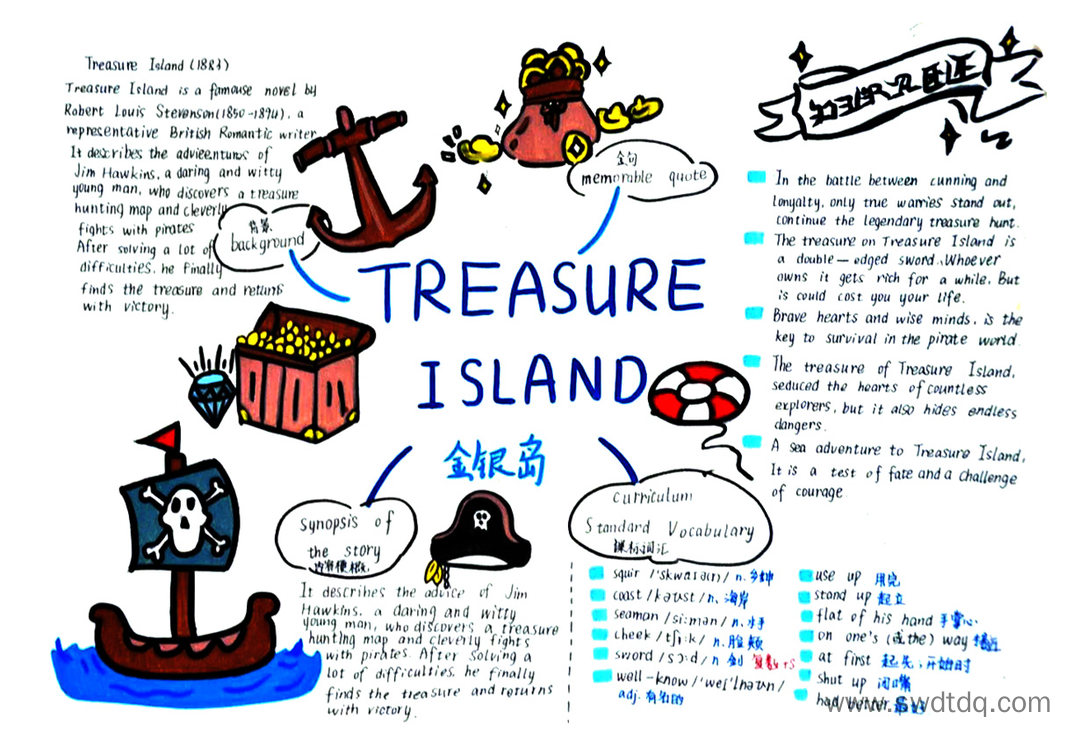 Treasure Island (1883)
Treasure Island is a famouse novel by
Robert Louis Stevenson(1850-1894), a
representative British Romantic writer
It describes the advieentures of
Jim Hawkins, a daring and witty
young man, who discovers a treasure
hunting map and cleverly
fights with pirates
After solving a lot of
difficulties, he finally
finds the treasure and retuns
with victory.
背景
background
金句
memorable quote
TREASURE
ISLAND
金银岛
In the battle between cunning and
lonyalty, only true warries stand out,
continue the legendary treasure hunt.
The treasure on Treasure Island is
a double—edged sword. Whoever
owns it gets rich for a while, But
is could cost you your life.
Brave hearts and wise minds, is the
key to survival in the pirate world.
The treasure of Treasure Island,
seduced the hearts of countless
explorers, but it also hides endless
dangers.
A sea adventure to Treasure Island,
It is a test of fate and a challenge
of courage
Synopsis of
the story
It describes the advice of Jim
Hawkins, a daring and witty
young man, who discovers a treasure
hunting map and cleverly fights
with pirates. After solving a
lot of difficulties, he finally
finds the treasure and returns
with victory.
Curriculum
Standard Vocabulary
课标词汇
squir /'skwaɪə(r)/ n. 乡绅
coast /kəʊst/ n. 海岸
seaman /si:mən/ n. 水手
cheek /tʃi:k/ n. 脸颊
sword /sɔ:d/ n 剑
well-know /'wel'nəʊn/
adj. 有名的
use up 用完
stand up 起立
flat of his hand 手掌心
on one's (或the) way
at first 起先;开始时
shut up 闭嘴
had better 最好